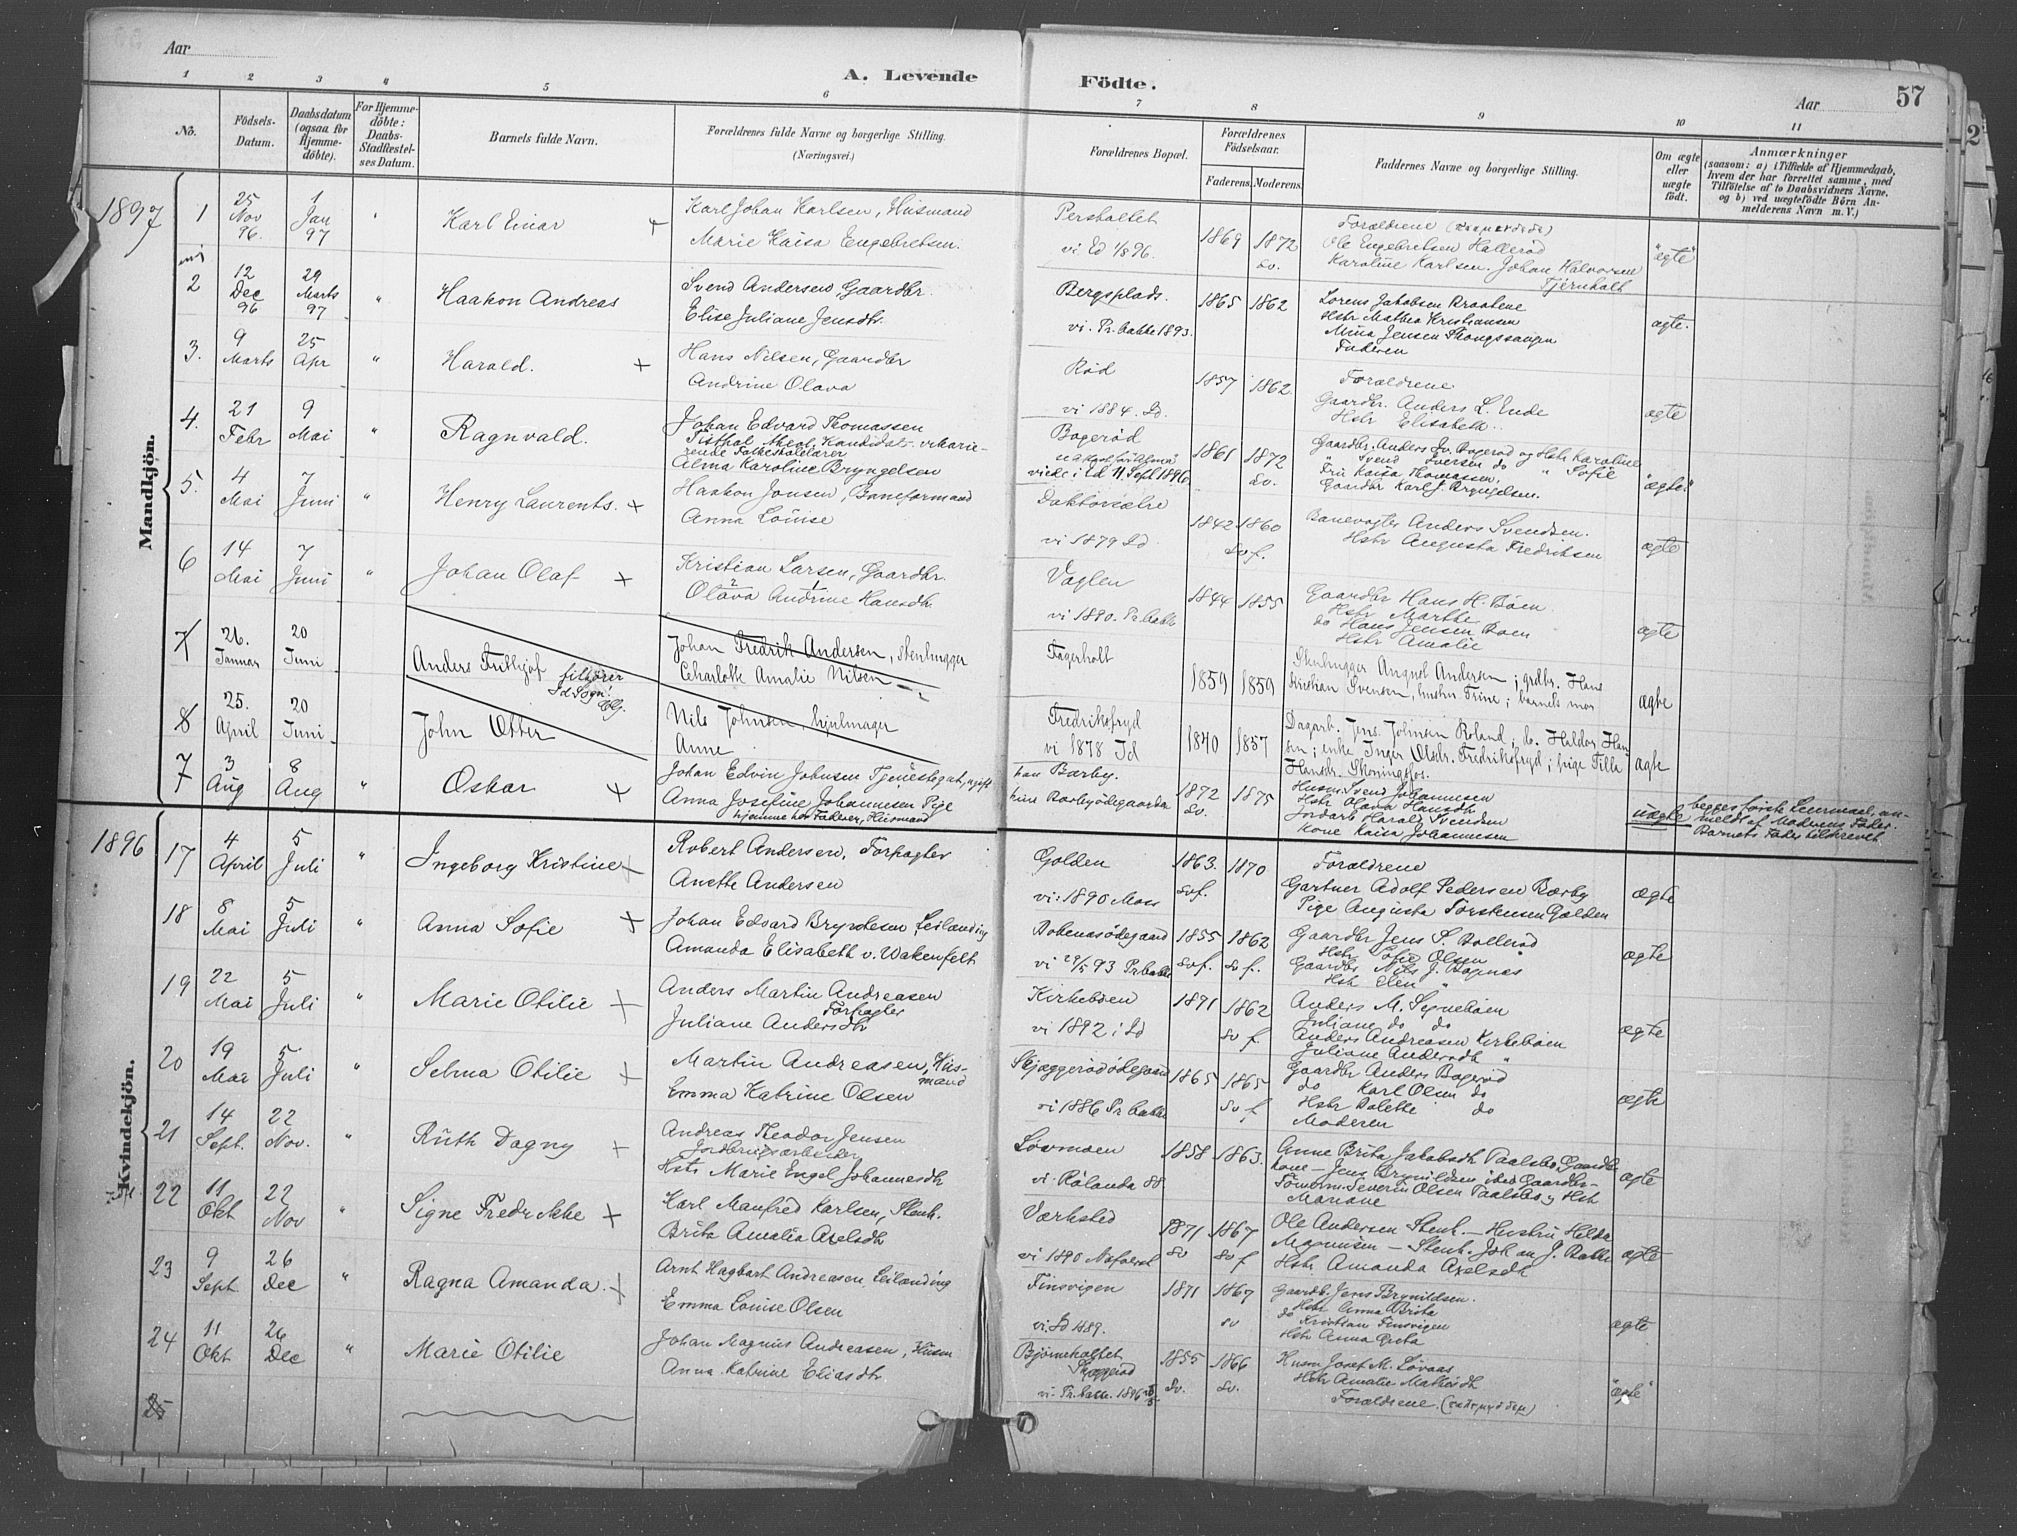 Aar
A. Levende Födte.
Aar
57
1 2 3 4 5 6 7 8 9 10 11
No.
Födsels-Datum.
Daabsdatum (ogsaa for Hjemme-döbte).
For Hjemme-döbte: Daabs-Stadfæstel-ses Datum.
Barnets fulde Navn.
Forældrenes fulde Navne og borgerlige Stilling.
(Næringsvei.)
Forældrenes Bopæl.
Forældrenes Födselsaar.
Faderens. Moderens.
Faddernes Navne og borgerlige Stilling.
Om ægte eller uægte født.
Anmærkninger
(saasom: a) i Tilfælde af Hjemmedaab,
hvem der har forrettet samme, med
Tilföielse af to Daabsvidners Navne,
og b) ved uægtefödte Börn An-
melderens Navn m. V.)
Mandkjön.
1897
1 25 Nov 96. 1 Jan 97 " Karl Einar
Karl Johan Karlsen, Husmand
Marie Kaisa Engebretsen.
Persholtet
vi Ed 1/8 96.
1869 1872 Sv.
Forældrene
Ole Engebretsen Hallerød
Karoline Karlsen. Johan Halvorsen
Tjernholt
"ægte"
2 12 Dec 96 29 Marts 97 " Haakon Andreas
Svend Andersen, Gaardbr.
Elise Juliane Jensdtr.
Bergsplads.
vi. Pr.bakke 1893.
1865 1862
Lorens Jakobsen Braatene
Hstr Mathea Kristiansen
Mina Jensen
Faderen
ægte.
3. 9 Marts 25 Apr " Harald.
Hans Nilsen, Gaardbr
Andrine Olava
Rød
vi 1884. Id.
1857 1862
Forældrene
Gaardbr. Anders L. Ende
Hstr Elisabeth
ægte
4. 21 Febr 9 Mai " Ragnvald.
Johan Edvard Thomassen
Tistdal, theol. Kandidat, vikarie-
rende Folkeskolelærer
Alma Karoline Bryngelsen
Bogerød
viede i Ed 11 Sept 1896.
1861 1872 Sv.
Gaardbr. Anders Iv. Bogerød og Hstr Karoline
" Svend Iversen do " Sofie
Fru Kaisa Thomassen,
Gaardbr Karl J. Bryngelsen.
"ægte"
5. 4 Mai 7 Juni " Henry Laurents.
Haakon Jonsen, Baneformand
Anna Louise
vi 1879 Id
1842 1860 Sv f.
Banevogter Anders Svendsen.
Hstr Augusta Fredriksen
ægte
6 14 Mai 7 Juni " Johan Olaf
Kristian Larsen, Gaardbr.
Olava Andrine Hansdtr.
Vaglen
vi 1890. Pr.bakke
1844 1855
Gaardbr Hans H. Bøen.
Hstr Marthe
do Hans Jensen Bøen
Hstr Amalie
ægte
7 26. Januar 20 Juni
Anders Frithjof
tilhører Id Sogn!
Johan Fredrik Andersen, stenhugger
Charlotte Amalie Nilsen
Fagerholt
1859 1859
Stenhugger August Andersen; grdbr. Hans
Kristian Svensen, hustru Trine; barnets mor
ægte
8 25. April 20 Juni
John Otter
Nils Johnsen, hjulmager
Anne
Fredriksfryd
vi 1878 Id
1840 1857
Dagarb. Jens Johnsen Roland; do. Haldor Han-
sen; enke Inger Olsdr. Fredriksfryd; pige Tilla
Hansdr. Skoningsfos.
ægte
7 3 Aug 8 Aug " Oskar
Johan Edvin Johnsen Tjenestegut, ugift
Anna Josefine Johannesen Pige
hjemme hos Fader, Husmand
han Bærby.
hun Bærbyødegaarden
1872 Sv. 1875
Husm. Svend Johannesen
Hstr Olava Hansdtr
Jordarb Harald Svendsen
Kone Kaisa Johannesen
uægte
begges første Leiermaal, an-
meldt af Moderens Fader.
Barnets Fader tilskrevet.
Kvindekjön.
1896
17 4 April 5 Juli " Ingeborg Kristine
Robert Andersen, Forpagter
Anette Andersen
Golden
vi: 1890 Moss
1863. Svf. 1870
Forældrene
Gartner Adolf Pedersen Bærby
Pige Augusta Torstensen Golden
ægte
18 8 Mai 5 Juli " Anna Sofie
Johan Edvard Bryntesen Leilænding
Amanda Elisabeth v. Wakenfelt
vi 29/5 93 Pr.bakke
1855 Svf. 1862 Sv f.
Gaardbr Jens S. Bollerød
Hstr Sofie Olsen "
Gaardbr Nils J. Bognæs
Hstr Elen "
ægte
19 22 Mai 5 Juli " Marie Otilie
Anders Martin Andreasen
Forpagter
Juliane Andersdtr
Kirkebøen
vi 1892 i Id
1871 1862 Sv f
Anders M. Signebøen
Juliane do do
Anders Andreasen Kirkebøen
Juliane Andersdtr "
ægte
20 19 Mai 5 Juli " Selma Otilie
Martin Andreasen, Hus-
mand
Emma Katrine Olsen
Skjæggerødødegaard
vi 1886 Pr.bakke
1865 1865 Sv f
Gaardbr Anders Bogerød
do Karl Olsen do
Hstr Bolette do
Moderen
ægte
21 14 Sept. 22 Nov. " Ruth Dagny
Andreas Theodor Jensen
Jordbrugsarbeider
Hstr Marie Engel Johannesdtr
Løvmoen
vi. Rølanda 88
1858 1863.
Anne Brita Jakobsdtr Paalsbo, Gaardbr
kone – Jens Brynildsen ibid Gaardbr –
Tømmerm. Severin Olsen Paalsbo, Hstr
Mariane
ægte
22 11 Okt 22 Nov " Signe Fredrikke
Karl Manfred Karlsen, Stenh.
Brita Amalia Axelsdtr
Værksted
vi 1890 Naverst
1871 Sv 1867 Sv f
Ole Andersen Stenh. – Hustru Hilda
Magnusen – Stenh. Johan J. Bakke
Hstr Amanda Axelsdtr
ægte
23 9 Sept. 26 Dec " Ragna Amanda.
Arnt Hagbart Andreasen, Leilænding
Emma Louise Olsen
Finsvigen
vi. Id 1889.
1871 1867 Sv
Gaardb. Jens Brynildsen.
Hstr Anna Brita
do Kristian Finsvigen
Hstr Anna Greta
ægte
24 11 Okt 26 Dec " Marie Otilie
Johan Magnus Andreasen, Husm
Anna Katrine Eliasdtr
Bjørneholtet
Skjæggerød
vi. Pr.bakke. 1896
1855 Sv. 1866 Sv.
Husm Josef M. Løvaas
Hstr Amalie Mathisdtr
Forældrene.
"ægte"
25